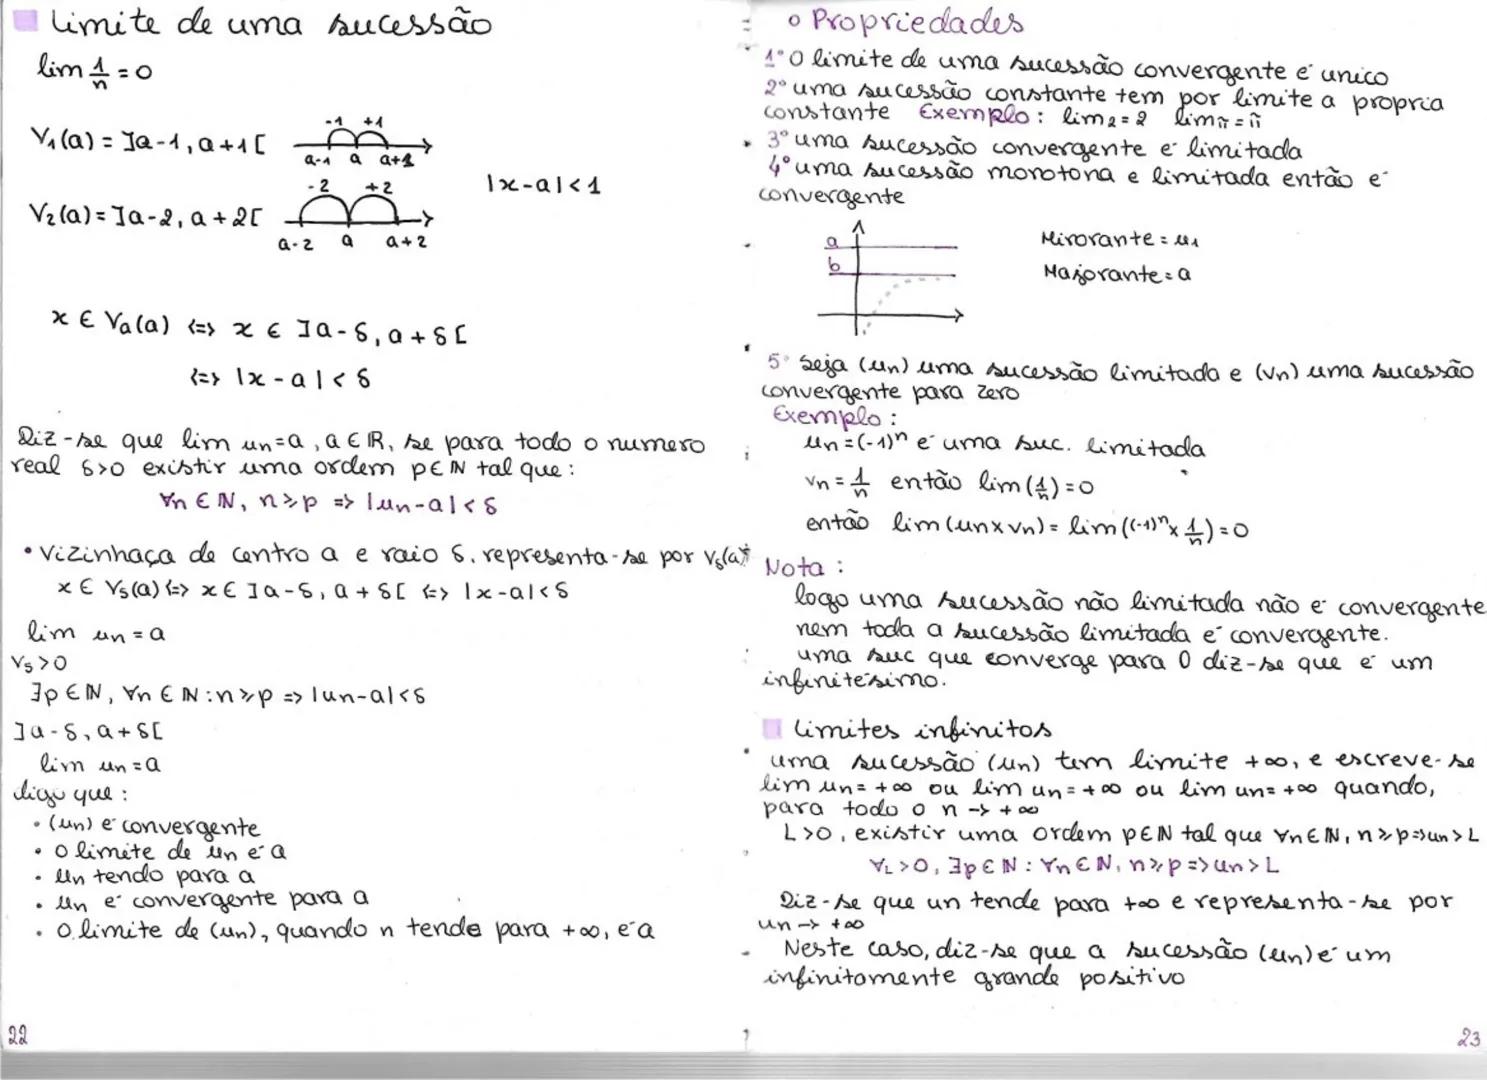 Limite de uma sucessão
lim 1/n = 0
V₁(a) = ]a-1, a+1[
-1 +1
a-1 a a+1
|x-a|<1
V₂(a) = ]a-2, a+2[
-2 +2
a-2 a a+2
x ∈ Va(a) <=> x ∈ ]a-δ, a+δ[
<=> |x-a| < δ
Diz-se que lim un=a, a ∈ IR, se para todo o numero
real δ>0 existir uma ordem p ∈ IN tal que:
∀n ∈ IN, n ≥ p => |un-a| < δ
• Vizinhaça de centro a e raio δ. representa-se por Vδ(a)
x ∈ Vδ(a) <=> x ∈ ]a-δ, a+δ[ <=> |x-a|<δ
lim un = a
∀δ>0
∃p ∈ IN, ∀n ∈ IN : n ≥ p => |un-a|<δ
]a-δ, a+δ[
lim un = a
digo que :
• (un) é convergente
• O limite de un é a
• Un tendo para a
• Un é convergente para a
• O limite de (un), quando n tende para +∞, é a
22
o Propriedades
1° O limite de uma sucessão convergente é unico
2° uma sucessão constante tem por limite a propria
constante Exemplo: lim 2 = 2 lim π = π
3° uma sucessão convergente é limitada
4° uma sucessão monotona e limitada então é
convergente
a
b
Minorante = u₁
Majorante = a
5° Seja (un) uma sucessão limitada e (vn) uma sucessão
convergente para zero
Exemplo :
un = (-1)ⁿ é uma suc. limitada
vn = 1/n então lim (1/n) = 0
então lim (un x vn) = lim ((-1)ⁿ x 1/n) = 0
Nota :
logo uma sucessão não limitada não é convergente
nem toda a sucessão limitada é convergente.
uma suc que converge para 0 diz-se que é um
infinitésimo.
Limites infinitos
uma sucessão (un) tem limite +∞, e escreve-se
lim un = +∞ ou lim un = +∞ ou lim un = +∞ quando,
para todo o n -> +∞
L>0, existir uma ordem p ∈ IN tal que ∀n ∈ IN, n ≥ p => un > L
∀L >0, ∃p ∈ IN : ∀n ∈ IN, n ≥ p => un > L
Diz-se que un tende para +∞ e representa-se por
un -> +∞
Neste caso, diz-se que a sucessão (un) é um
infinitamente grande positivo
23